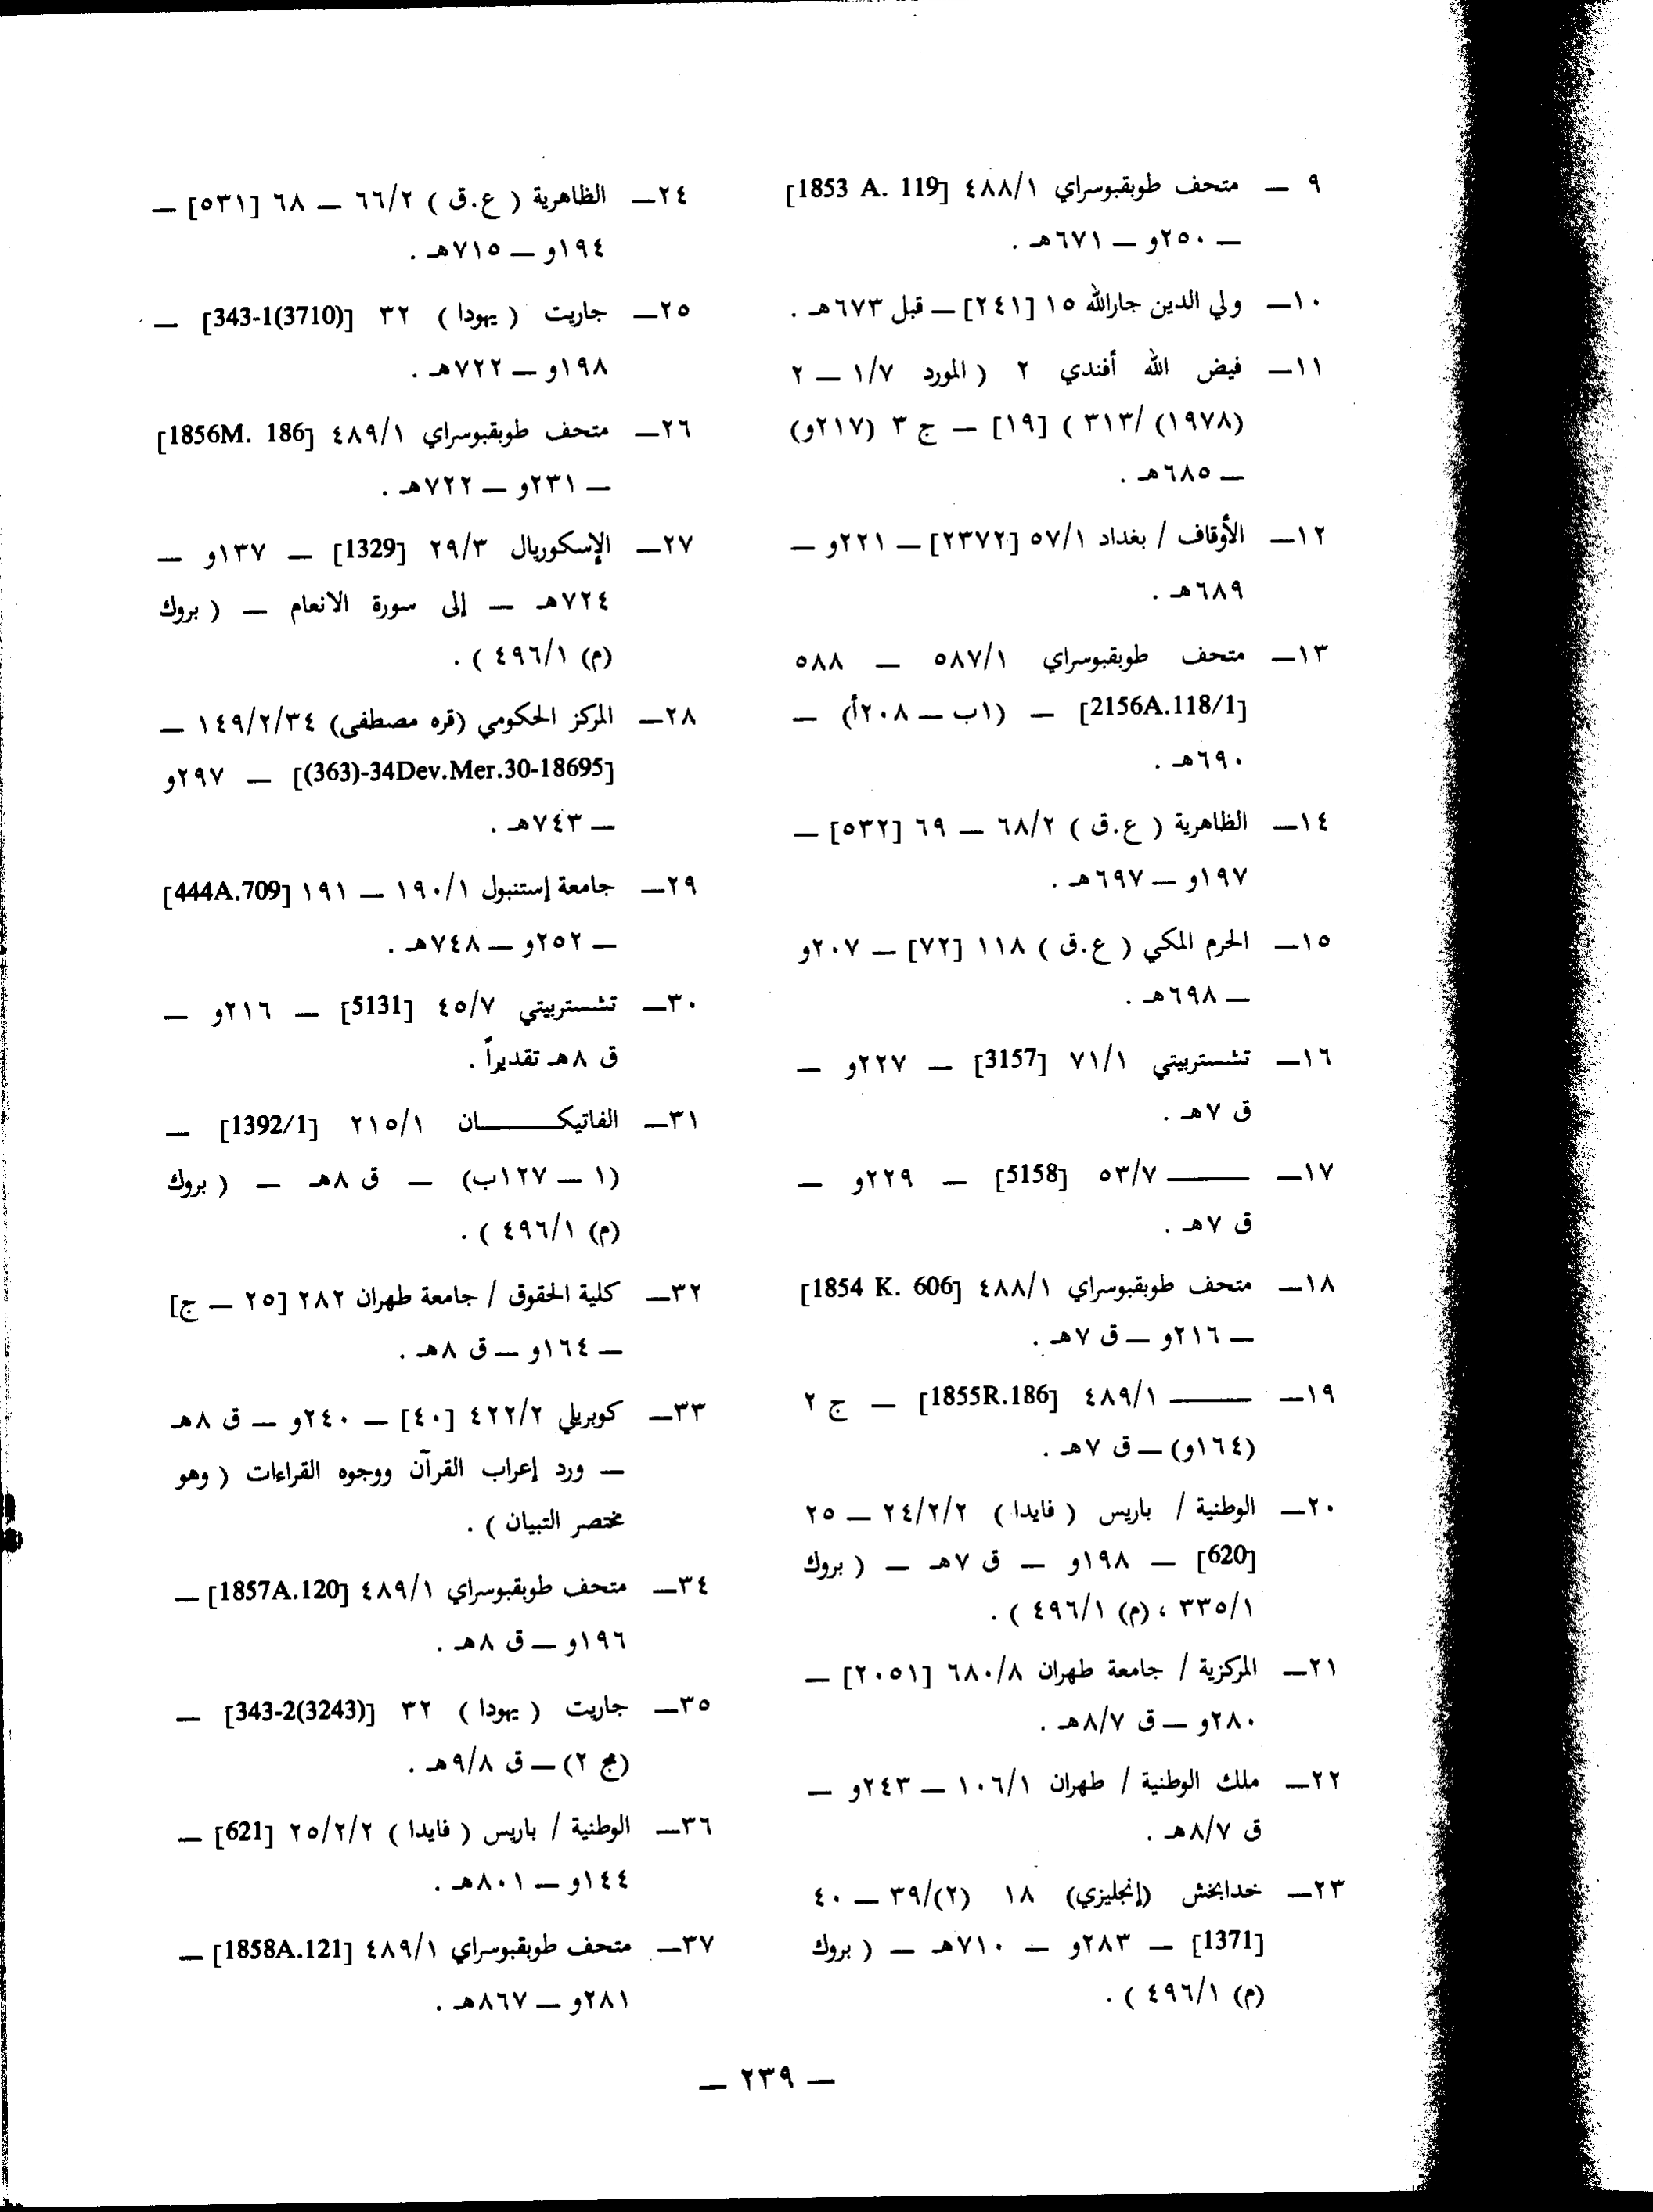 ٩ — متحف طوبقبوسراي ٤٨٨/١ [1853 A. 119]
— ٢٥٠و — ٦٧١هـ .
١٠— ولي الدين جارالله ١٥ [٢٤١] — قبل ٦٧٣هـ .
١١— فيض الله أفندي ٢ ( المورد ١/٧ — ٢
(١٩٧٨) /٣١٣ ) [١٩] — ج ٣ (٢١٧و)
— ٦٨٥هـ .
١٢— الأوقاف / بغداد ٥٧/١ [٢٣٧٢] — ٢٢١و —
٦٨٩هـ .
١٣— متحف طوبقبوسراي ٥٨٧/١ — ٥٨٨
[2156A.118/1] — (١ب — ٢٠٨أ) —
٦٩٠هـ .
١٤— الظاهرية ( ع.ق ) ٦٨/٢ — ٦٩ [٥٣٢] —
١٩٧و — ٦٩٧هـ .
١٥— الحرم المكي ( ع.ق ) ١١٨ [٧٢] — ٢٠٧و
— ٦٩٨هـ .
١٦— تشستربيتي ٧١/١ [3157] — ٢٢٧و —
ق ٧هـ .
١٧— ——— ٥٣/٧ [5158] — ٢٢٩و —
ق ٧هـ .
١٨— متحف طوبقبوسراي ٤٨٨/١ [1854 K. 606]
— ٢١٦و — ق ٧هـ .
١٩— ——— ٤٨٩/١ [1855R.186] — ج ٢
(١٦٤و) — ق ٧هـ .
٢٠— الوطنية / باريس ( فايدا ) ٢٤/٢/٢ — ٢٥
[620] — ١٩٨و — ق ٧هـ — ( بروك
٣٣٥/١ ، (م) ٤٩٦/١ ) .
٢١— المركزية / جامعة طهران ٦٨٠/٨ [٢٠٥١] —
٢٨٠و — ق ٨/٧هـ .
٢٢— ملك الوطنية / طهران ١٠٦/١ — ٢٤٣و —
ق ٨/٧هـ .
٢٣— خدابخش (إنجليزي) ١٨ (٢)/٣٩ — ٤٠
[1371] — ٢٨٣و — ٧١٠هـ — ( بروك
(م) ٤٩٦/١ ) .
٢٤— الظاهرية ( ع.ق ) ٦٦/٢ — ٦٨ [٥٣١] —
١٩٤و — ٧١٥هـ .
٢٥— جاريت ( يهودا ) ٣٢ [343-1(3710)] —
١٩٨و — ٧٢٢هـ .
٢٦— متحف طوبقبوسراي ٤٨٩/١ [1856M. 186]
— ٢٣١و — ٧٢٢هـ .
٢٧— الإسكوريال ٢٩/٣ [1329] — ١٣٧و —
٧٢٤هـ — إلى سورة الانعام — ( بروك
(م) ٤٩٦/١ ) .
٢٨— المركز الحكومي (قره مصطفى) ١٤٩/٢/٣٤ —
[(363)-34Dev.Mer.30-18695] — ٢٩٧و
— ٧٤٣هـ .
٢٩— جامعة إستنبول ١٩٠/١ — ١٩١ [444A.709]
— ٢٥٢و — ٧٤٨هـ .
٣٠— تشستربيتي ٤٥/٧ [5131] — ٢١٦و —
ق ٨هـ تقديراً .
٣١— الفاتيكـــــــان ٢١٥/١ [1392/1] —
(١ — ١٢٧ب) — ق ٨هـ — ( بروك
(م) ٤٩٦/١ ) .
٣٢— كلية الحقوق / جامعة طهران ٢٨٢ [٢٥ — ج]
— ١٦٤و — ق ٨هـ .
٣٣— كوبريلي ٤٢٢/٢ [٤٠] — ٢٤٠و — ق ٨هـ
— ورد إعراب القرآن ووجوه القراءات ( وهو
مختصر التبيان ) .
٣٤— متحف طوبقبوسراي ٤٨٩/١ [1857A.120] —
١٩٦و — ق ٨هـ .
٣٥— جاريت ( يهودا ) ٣٢ [343-2(3243)] —
(مج ٢) — ق ٩/٨هـ .
٣٦— الوطنية / باريس ( فايدا ) ٢٥/٢/٢ [621] —
١٤٤و — ٨٠١هـ .
٣٧— متحف طوبقبوسراي ٤٨٩/١ [1858A.121] —
٢٨١و — ٨٦٧هـ .
— ٢٣٩ —